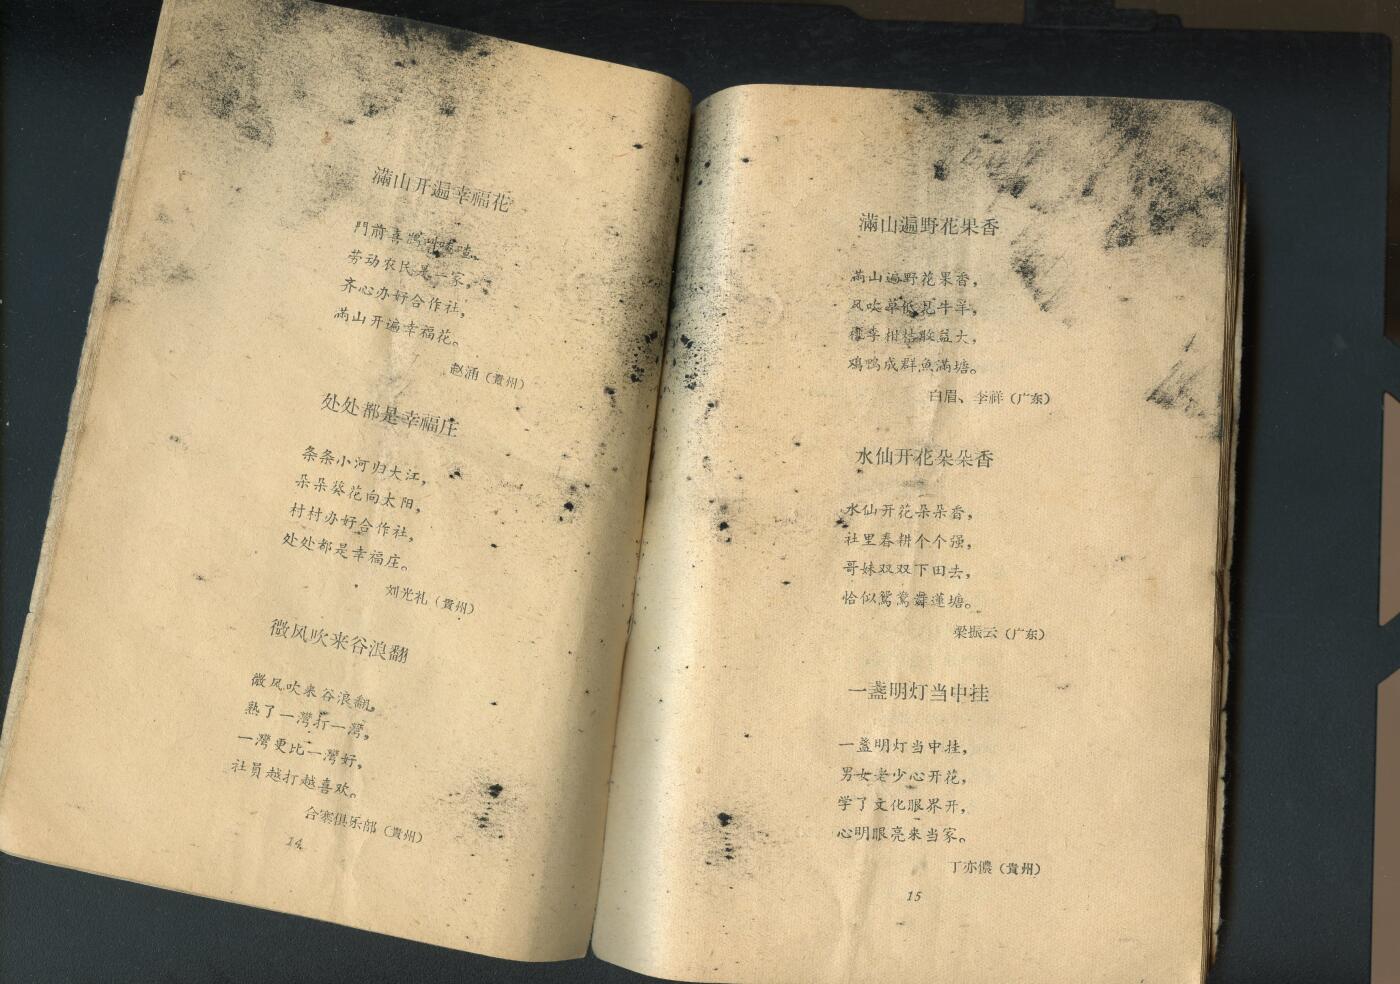 滿山开遍幸福花
門前喜鹊叫喳喳，
劳动农民是一家，
齐心办好合作社，
滿山开遍幸福花。
赵涌（貴州）
处处都是幸福庄
条条小河归大江，
朵朵葵花向太阳，
村村办好合作社，
处处都是幸福庄。
刘光礼（貴州）
微风吹来谷浪翻
微风吹来谷浪翻，
熟了一灣打一灣，
一灣更比一灣好，
社員越打越喜欢。
合寨俱乐部（貴州）
14
滿山遍野花果香
滿山遍野花果香，
风吹草低見牛羊，
李柑桔
大，
鸡鴨成群魚滿塘。
白眉、李祥（广东）
水仙开花朵朵香
水仙开花朵朵香，
社里春耕个个强，
哥妹双双下田去，
恰似鴛鴦舞蓮塘。
梁振云（广东）
一盞明灯当中挂
一盞明灯当中挂，
男女老少心开花，
学了文化眼界开，
心明眼亮来当家。
丁亦儂（貴州）
15